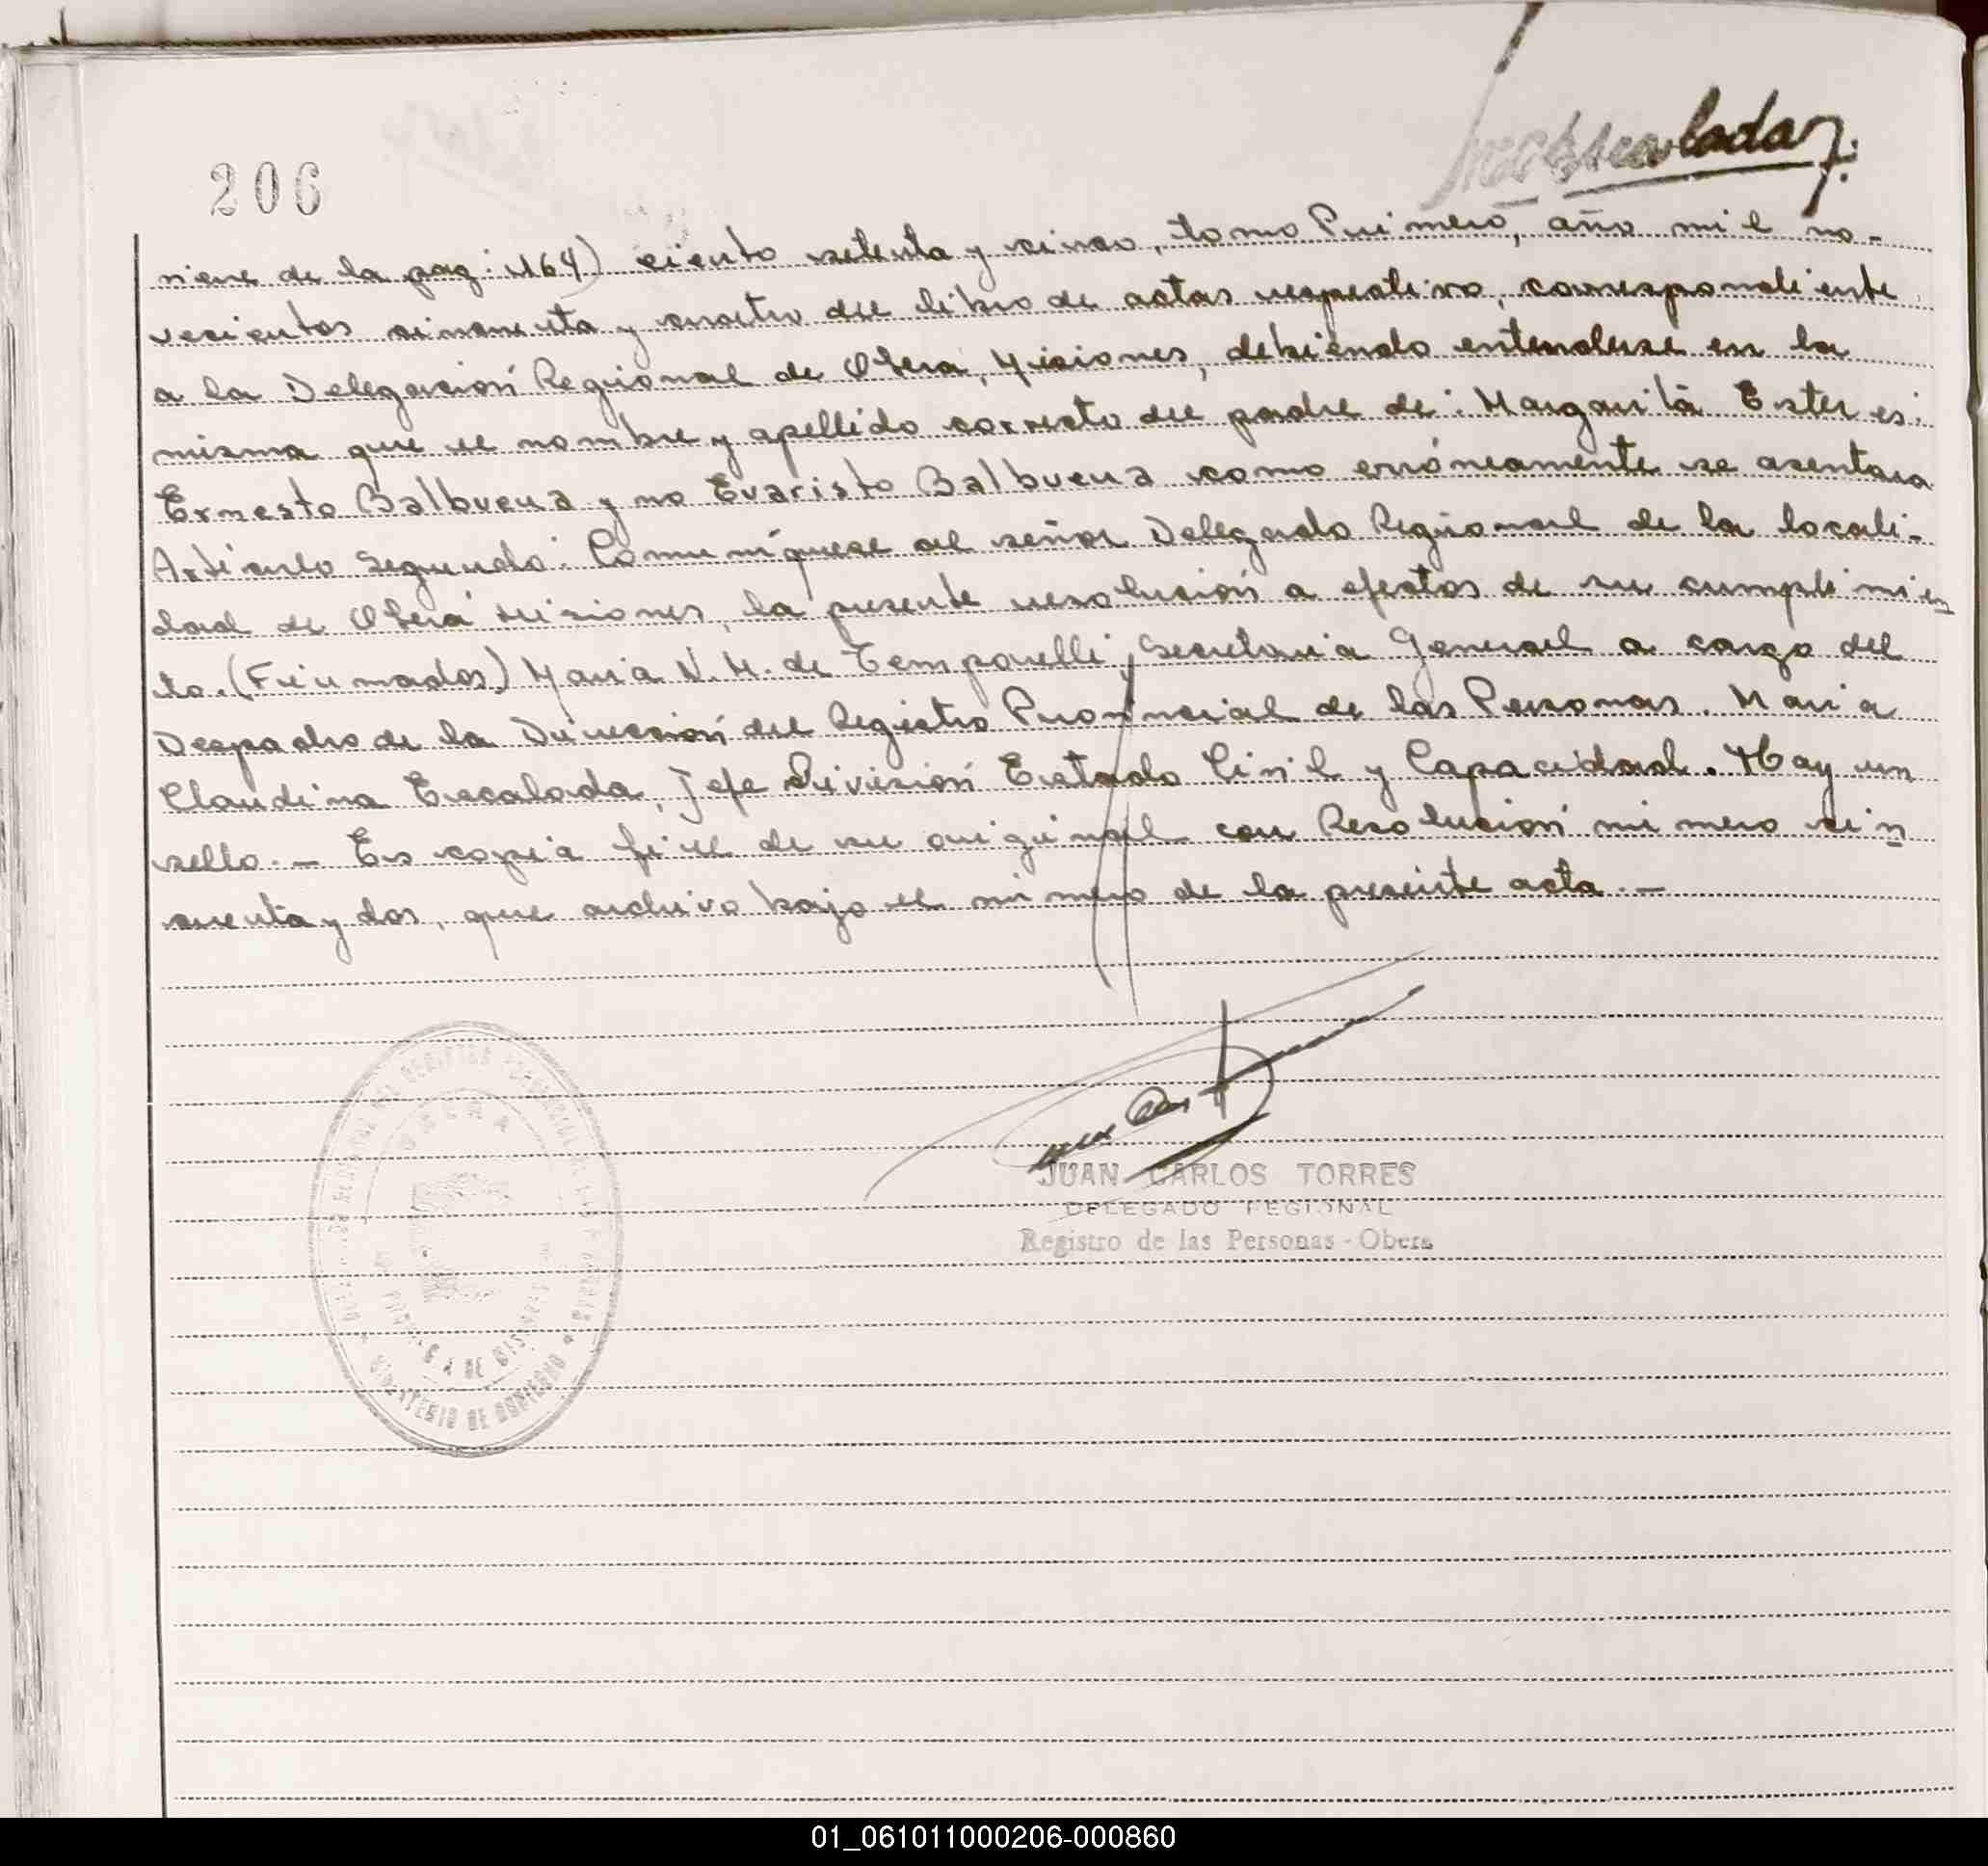 206
viene de la pag: 164) ciento setenta y cinco, tomo Primero, año mil no-
vecientos cincuenta y cuatro del libro de actas respectivo, correspondiente
a la Delegación Regional de Oberá, Misiones, debiendo entenderse en la
misma que el nombre y apellido correcto del padre de: Margarita Ester es:
Ernesto Balbuena y no Evaristo Balbuena como erróneamente se asentara
Artículo Segundo: Comuníquese al señor Delegado Regional de la locali-
dad de Oberá Misiones, la presente resolución a efectos de su cumplimien
to. (Firmados) Maria N. M. de Temporelli, Secretaria General a cargo del
Despacho de la Dirección del Registro Provincial de las Personas. Maria
Claudina Escalada, Jefe División Estado Civil y Capacidad. Hay un
sello. - Es copia fiel de su original con Resolución número cin
cuenta y dos, que archivo bajo el número de la presente acta. -
JUAN CARLOS TORRES
DELEGADO REGIONAL
Registro de las Personas - Obera
OBERA
PROVINCIA DE MISIONES
MINISTERIO DE GOBIERNO
01_061011000206-000860